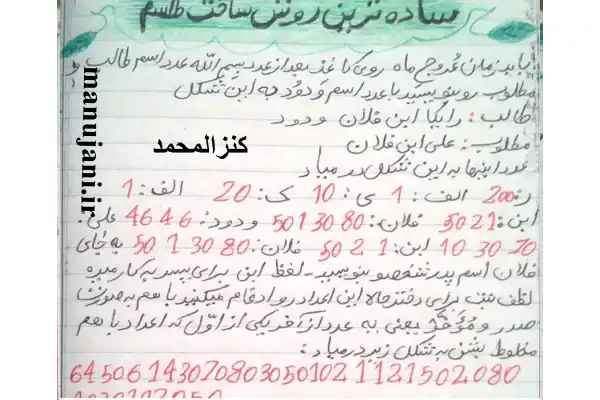 ساده ترین روش ساخت طلسم
باید زمان عُروج ماه روی کاغذ بعد از عدد بسم الله عدد اسم طالب و
مطلوب رو بنویسید با عدد اسم ودُود به این شکل
طالب: رایکا ابن فلان ودود
مطلوب: علی ابن فلان
کنزالمحمد
manujani.ir
عدد اینها به این شکل در میاد
ر: 200 الف: 1 ی: 10 ک: 20 الف: 1
ابن: 50 2 1 فلان: 80 30 1 50 ودود: 6 4 6 4 علی:
70 30 10 ابن: 1 2 50 فلان: 80 30 1 50 به جای
فلان اسم پدر شخصو بنویسید - لفظ ابن برای پسر به کار میره
لفظ بنت برای دختر حالا این اعداد رو ادغام میکنید با هم به صورت
صدر و مُؤَخَّر یعنی یه عدد از آخر یکی از اوّل که اعداد با هم
مخلوط بشن به شکل زیر در میاد:
64506143070803050102 1121502080